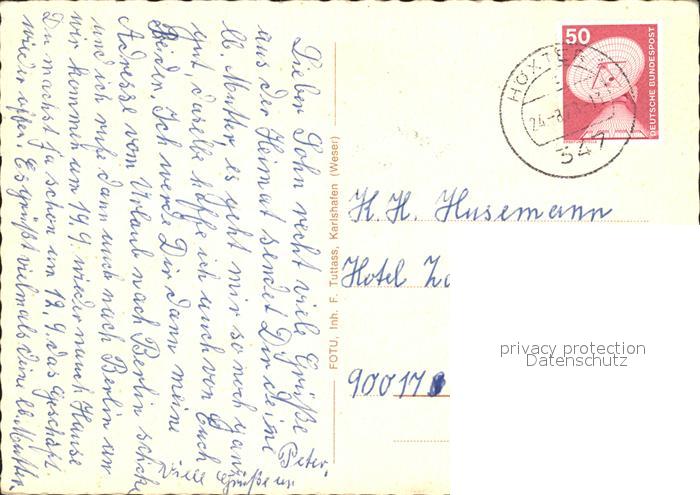 Lieber Sohn recht viele Grüße
aus der Heimat sendet Dir deine
lb. Mutter, es geht mir so noch ganz
gut, daselbe hoffe ich auch von Euch
Beiden. Ich werde Dir dann meine
Adresse vom Urlaub nach Berlin schicken
und ich rufe dann auch nach Berlin an
wir kommen um 19.9. wieder nach Hause
Du machst ja schon um 12.9. das Geschäft
wieder offen. Es grüßt vielmals deine lb. Mutter.
Viele Grüße an
Peter.
FOTU, Inh. F. Tuttass, Karlshafen (Weser)
50
DEUTSCHE BUNDESPOST
HÖXTER
24.-8.
347
H. H. Husemann
Hotel
900 17
privacy protection
Datenschutz